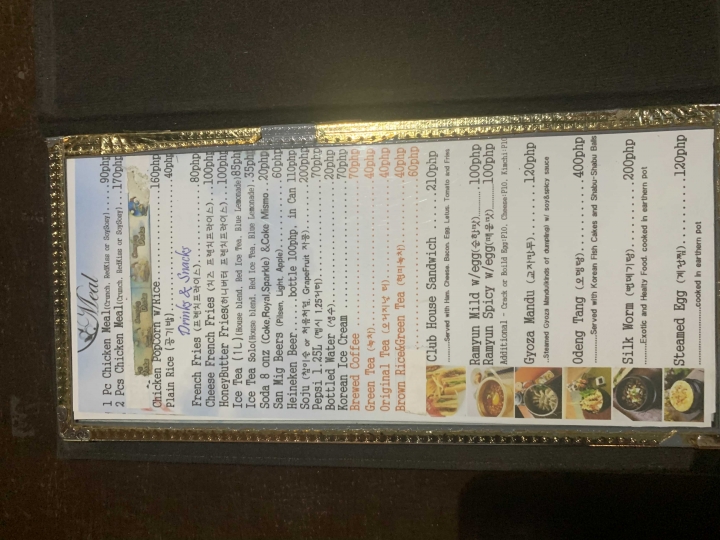 Meal
1 Pc Chicken Meal(Crunch, RedKiss or SoySony)....90php
2 Pcs Chicken Meal(Crunch, RedKiss or SoySony)...170php
Chicken PopCorn W/Rice....................160php
Plain Rice (공기밥)....................40php
Drinks & Snacks
French Fries (프렌치프라이스)..........80php
Cheese French Fries (치즈 프렌치프라이스)..100php
HoneyButter Fries(허니버터 프렌치프라이스)..100php
Ice Tea (1L)(House blend, Red Ice Tea, Blue Lemonade)85php
Ice Tea Solo(House blend, Red Ice Tea, Blue Lemonade).35php
Soda 8 onz (Coke,Royal,Sparkle) &Coke Mismo..20php
San Mig Beers (Pilsen, Light, Apple)........60php
Heineken Beer......bottle 100php, in Can 110php
Soju (참이슬 or 처음처럼, GrapeFruit 자몽)......200php
Pepsi 1.25L (펩시 1.25리터)..........70php
Bottled Water (생수)..........20php
Korean Ice Cream..........70php
Brewed Coffee..........70php
Green Tea (녹차)..........40php
Original Tea (오리지널 티)..........40php
Brown Rice&Green Tea (현미녹차)..........40php
60php
Club House Sandwich ......210php
.......Served with Ham, Cheese, Bacon, Egg, Latus, Tomato and Fries
Ramyun Mild w/egg(순한맛).........100php
Ramyun Spicy w/egg(매운맛).........100php
Additional - Crack or Build Egg-P10, Cheese-P10, Kimchi-P10
Gyoza Mandu (교자만두)........120php
..Steamed Gyoza Mandu w/ soy&spicy sauce
Odeng Tang (오뎅탕)..........400php
.........Served with Korean Fish Cakes and Shabu-Shabu Balls
Silk Worm (번데기탕)..........200php
.........Exotic and Healty Food. cooked in earthern pot
Steamed Egg (계란찜)..........120php
...cooked in earthern pot